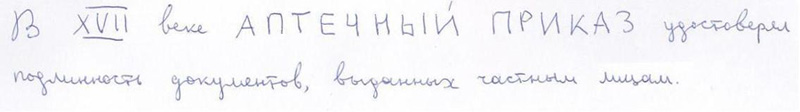 В XVII веке АПТЕЧНЫЙ ПРИКАЗ удостоверял
подлинность документов, выданных частным лицам.